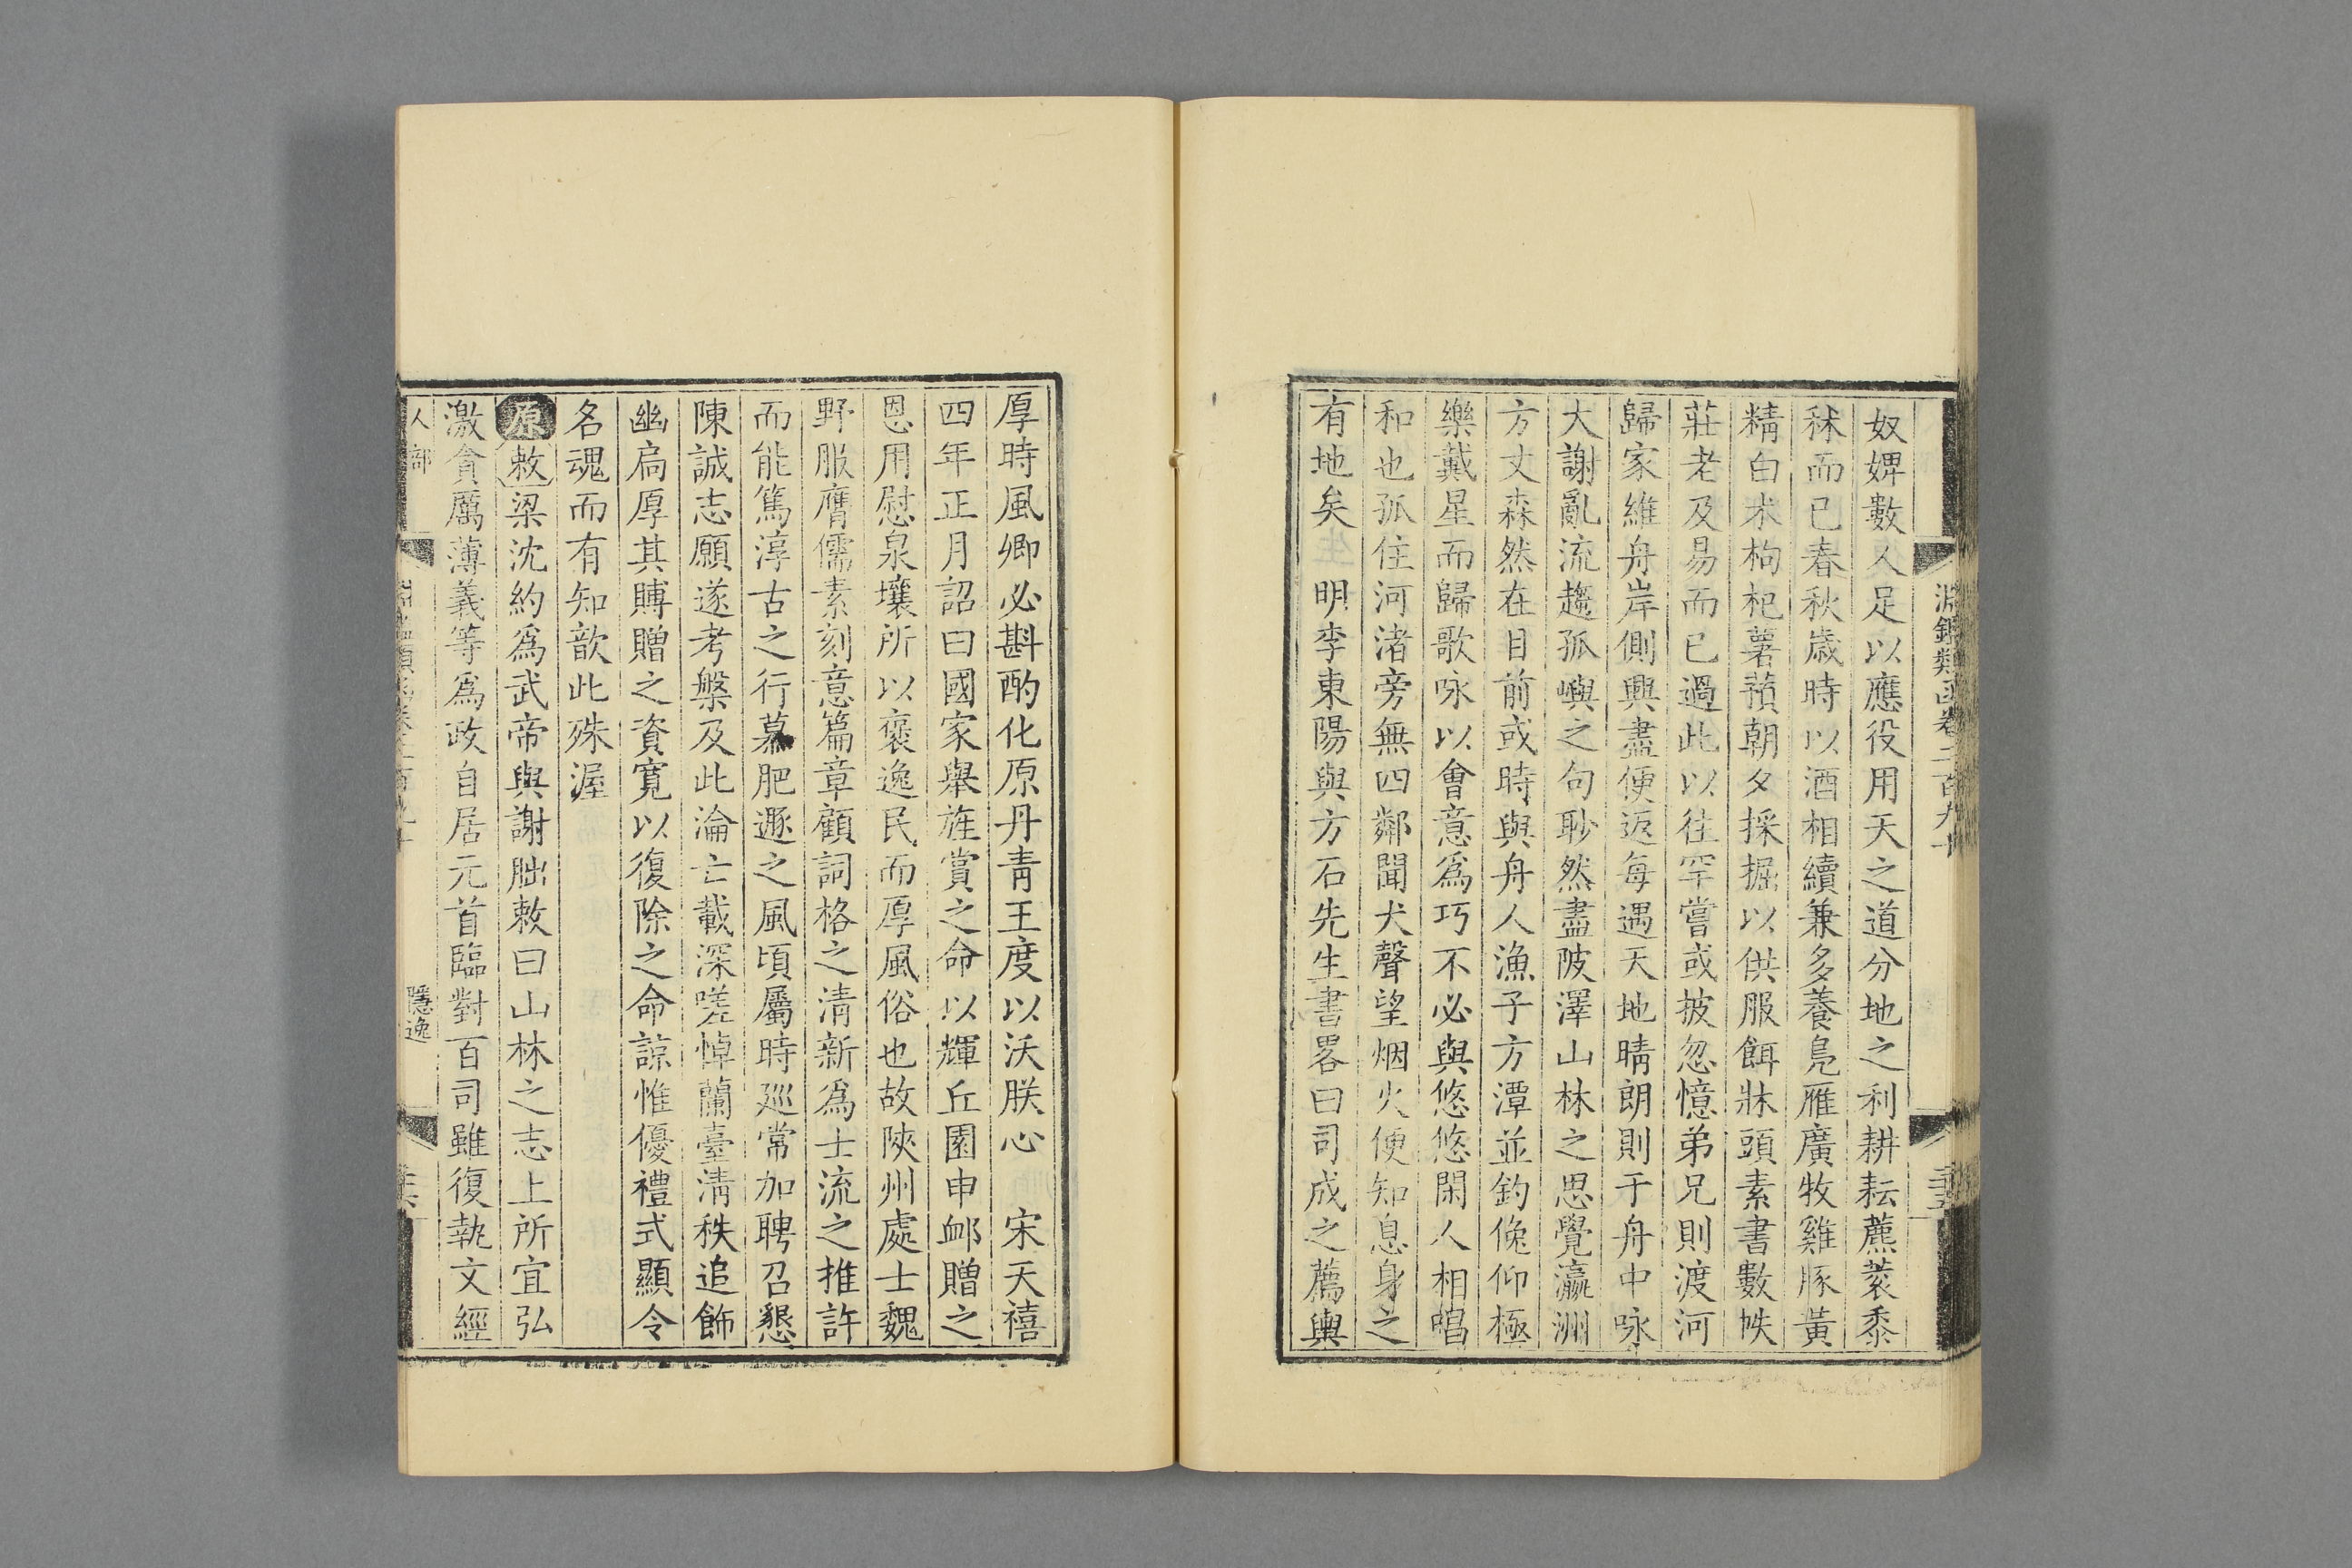 淵鑑類函卷二百九十
三十五
奴婢數人足以應役用天之道分地之利耕耘藨蓘黍
秫而已春秋歲時以酒相續兼多養鳧雁廣牧雞豚黃
精白朮枸杞薯蕷朝夕採掘以供服餌牀頭素書數帙
莊老及易而已過此以往罕嘗或披忽憶弟兄則渡河
歸家維舟岸側興盡便返每遇天地晴朗則于舟中咏
大謝亂流趨孤嶼之句眇然盡陂澤山林之思覺瀛洲
方丈森然在目前或時與舟人漁子方潭並釣俛仰極
樂戴星而歸歌咏以會意爲巧不必與悠悠閑人相唱
和也孤住河渚旁無四鄰聞犬聲望烟火便知息身之
有地矣　明李東陽與方石先生書畧曰司成之薦輿
厚時風卿必斟酌化原丹青王度以沃朕心　宋天禧
四年正月詔曰國家舉旌賞之命以輝丘園申卹贈之
恩用慰泉壤所以褒逸民而厚風俗也故陝州處士魏
野服膺儒素刻意篇章顧詞格之清新爲士流之推許
而能篤淳古之行慕肥遯之風頃屬時廵常加聘召懇
陳誠志願遂考槃及此淪亡載深嗟悼蘭臺清秩追飾
幽扃厚其賻贈之資寬以復除之命諒惟優禮式顯令
名魂而有知歆此殊渥
原敕梁沈約爲武帝與謝朏敕曰山林之志上所宜弘
激貪厲薄義等爲政自居元首臨對百司雖復執文經
人部
隱逸